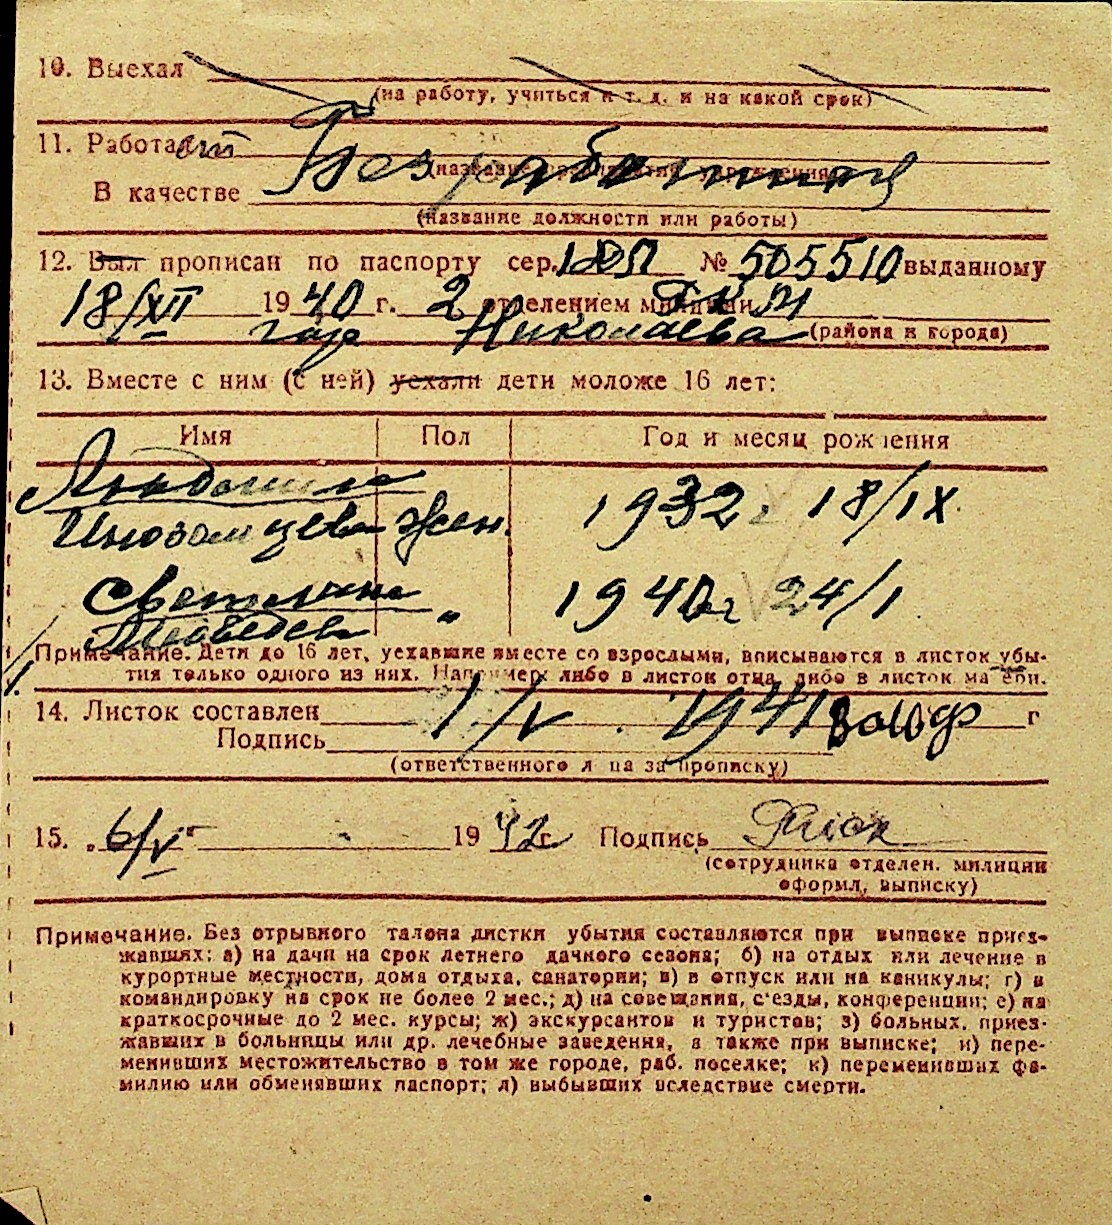 10. Выехал
(на работу, учиться и т. д. и на какой срок)
11. Работает Безработная
(название учреждения)
В качестве
(название должности или работы)
12. Был прописан по паспорту сер. № 505510 выданному
18/XII 1940 г. 2 отделением милиции
гор Николаева (района и города)
13. Вместе с ним (с ней) уехали дети моложе 16 лет:
Имя Пол Год и месяц рождения
Людмила
Иноземцева Жен. 1932. 18/IX.
Светлана 1940г 24/1
Медведев "
Примечание. Дети до 16 лет, уехавшие вместе со взрослыми, вписываются в листок убы-
тия только одного из них. Например: либо в листок отца, либо в листок матери.
14. Листок составлен 1/V. 1941 г
Подпись
(ответственного лица за прописку)
15. „6/V" 1942 г. Подпись
(сотрудника отделен. милиции
оформл, выписку)
Примечание. Без отрывного талона листки убытия составляются при выписке приез-
жавших: а) на дачи на срок летнего дачного сезона; б) на отдых или лечение в
курортные местности, дома отдыха, санатории; в) в отпуск или на каникулы; г) в
командировку на срок не более 2 мес.; д) на совещания, с'езды, конференции; е) на
краткосрочные до 2 мес. курсы; ж) экскурсантов и туристов; з) больных, приез-
жавших в больницы или др. лечебные заведения, а также при выписке; и) пере-
менивших местожительство в том же городе, раб. поселке; к) переменивших фа-
милию или обменявших паспорт; л) выбывших вследствие смерти.